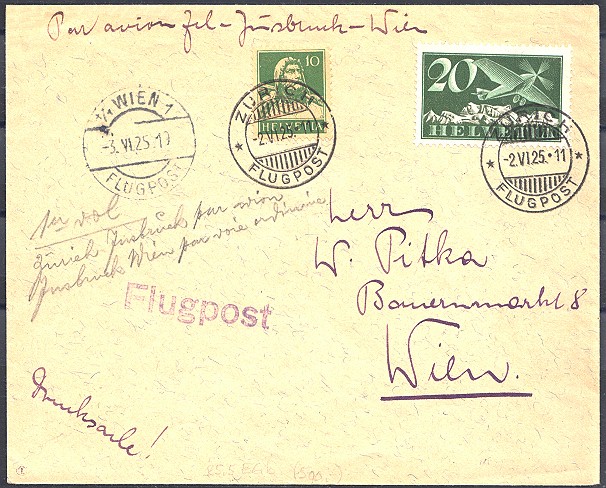 Par avion Zch - Insbruck - Wien
10
HELVETIA
20
HELVETIA
1 WIEN 1
-3.VI.25.19
FLUGPOST
ZÜRICH
-2.VI.25.
FLUGPOST
ZÜRICH
-2.VI.25.-11
FLUGPOST
1er vol
Zürich Insbruck par avion
Insbruck Wien par voie ordinaire
Flugpost
Herrn
W. Pitka
Bauernmarkt 8
Wien.
Drucksache!